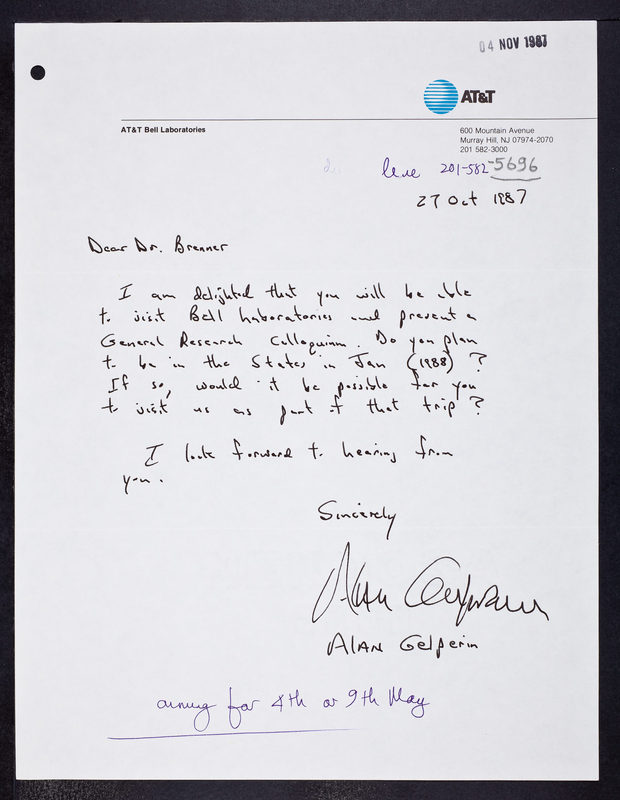 04 NOV 1987
AT&T
AT&T Bell Laboratories
600 Mountain Avenue
Murray Hill, NJ 07974-2070
201 582-3000
201-582-5696
27 Oct 1987
Dear Dr. Brenner
I am delighted that you will be able
to visit Bell Laboratories and present a
General Research Colloquium. Do you plan
to be in the States in Jan (1988) ?
If so, would it be possible for you
to visit us as part of that trip ?
I look forward to hearing from
you.
Sincerely
Alan Gelperin
Alan Gelperin
for 4th or 9th May